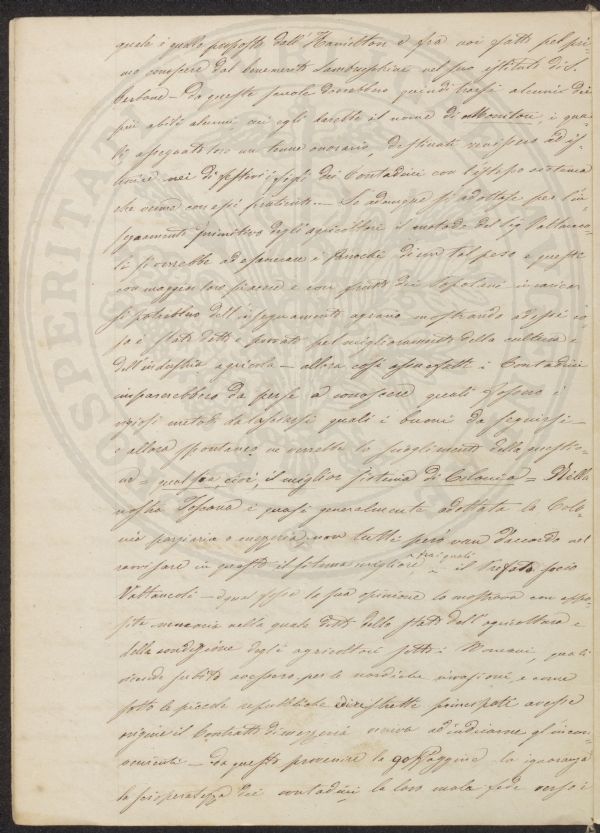 quale è quello proposto dell'Hamilton e fra noi fatto pel pri-
mo conoscere dal benemerito Lambruschini nel suo istituto di S.
Cerbone – da queste scuole dovrebbero quindi trarsi alcuni dei
più abili alunni cui egli darebbe il nome di Monitori, i qua-
li assegnato loro un tenue onorario, destinati venissero ad i-
struire nei dì festivi i figli dei Contadini con l'istesso sistema
che venne con essi praticato – Se dunque si adottasse per l'in-
segnamento primitivo degli agricoltori il metodo del Sig. Valtanco-
li si verrebbe ad esonerare i Parochi di un tal peso e questi
con maggior loro piacere e con frutto dei Popolani incaricar
si potrebbero dell'insegnamento agrario mostrando ad essi co-
sa è stato detto e provato pel miglioramento della cultura e
dell'industria agricola – allora così assuefatti i Contadini
imparerebbero da per se a conoscere quali fossero i
viziosi metodi da lasciarsi quali i buoni da seguirsi –
e allora spontaneo ne verrebbe lo scioglimento della questio-
ne = qual sia cioè il miglior sistema di Colonia = Nella
nostra Toscana è quasi generalmente adottata la Colo-
nia parziaria o mezzeria, non tutti però van d'accordo nel
ravvisare in questo il sistema migliore, trai quali il Prefato socio
Valtancoli – egli stesso la sua opinione la mostrava con appo-
sita memoria nella quale detto dello stato dell'agricoltura e
della condizione degli agricoltori sotto i Romani, quali
vicende subito avessero per le nordiche invasioni, e come
sotto le piccole repubbliche e i ristrette principati avesse
origine il Contratto di mezzeria veniva ad indicarne gl'incon-
venienti – da questo provenire la goffaggine la ignoranza
la scioperatezza dei contadini la loro mala fede verso i